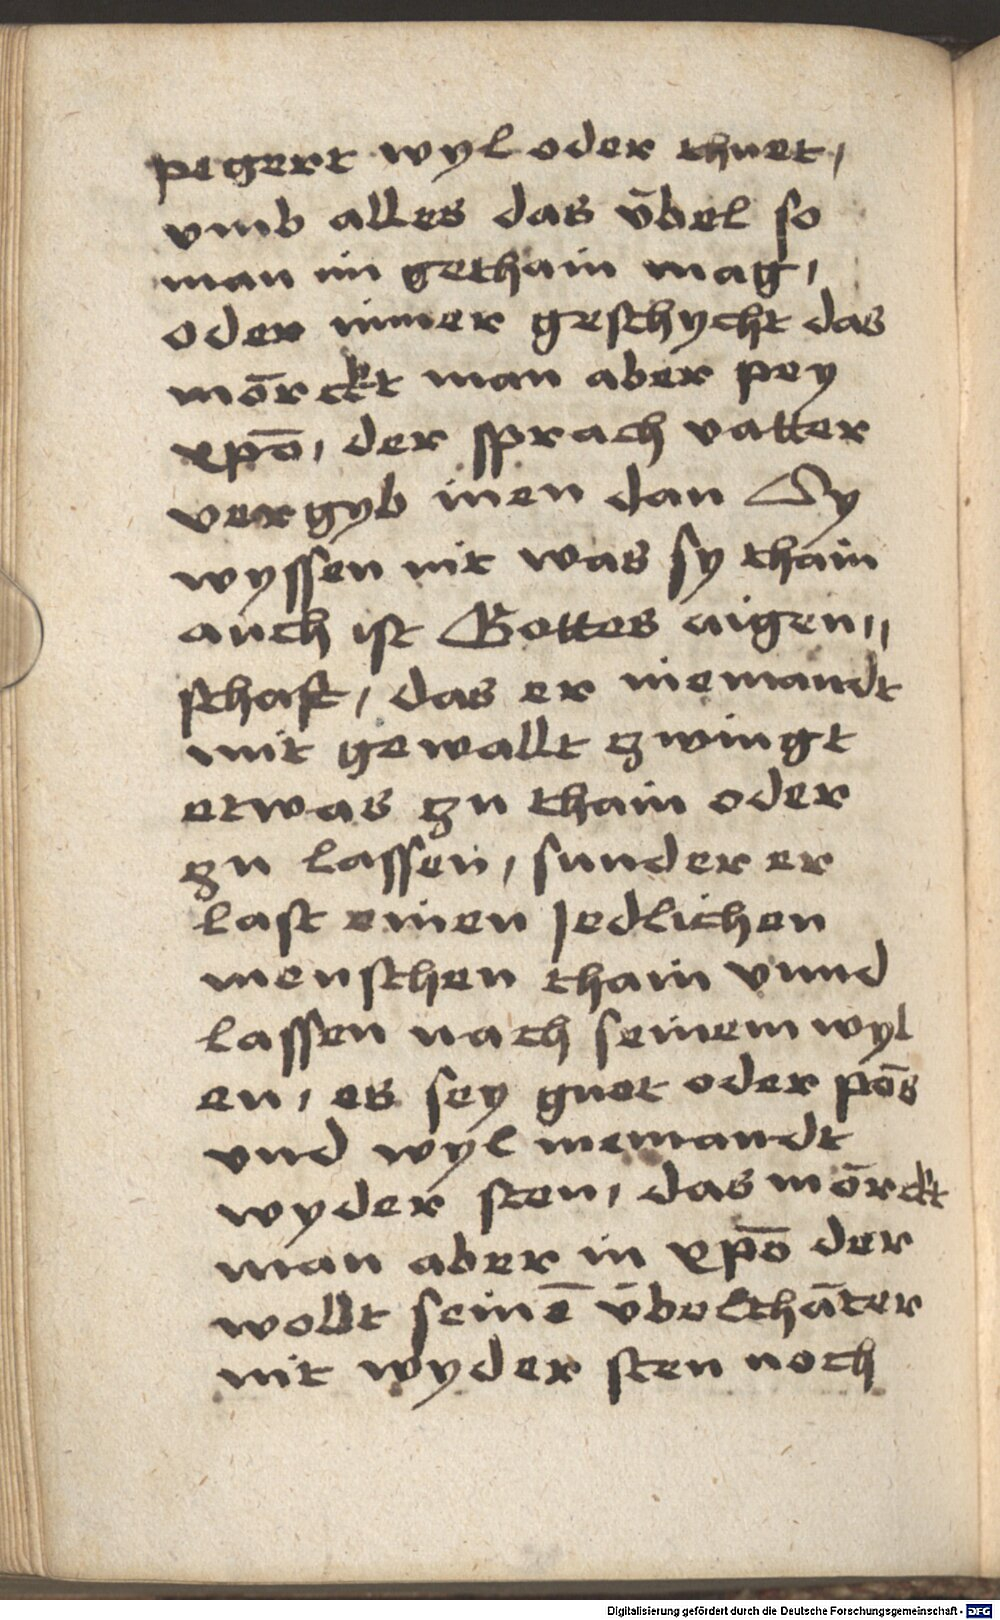 pegert wyl oder thuet,
vmb alles das v̄bel so
man im gethain mag,
oder inner geschycht das
mōrckt man aber pey
xpō, der sprach vatter
vergyb inen dan Sy
wyssen nit was sy thain
auch ist Gottes aigen,,
schaft, das er niemandt
mit gewallt zwingt
etwas zu thain oder
zu lassen, sunder er
last einen Jedlichen
menschen thain vnnd
lassen nach seinem wyl
en, es sey guet oder pōs
vnd wyl niemandt
wyder sten, das mōrckt
man aber in xpō der
wollt seinē v̄belthāter
nit wyder sten noch
Digitalisierung gefördert durch die Deutsche Forschungsgemeinschaft - DFG